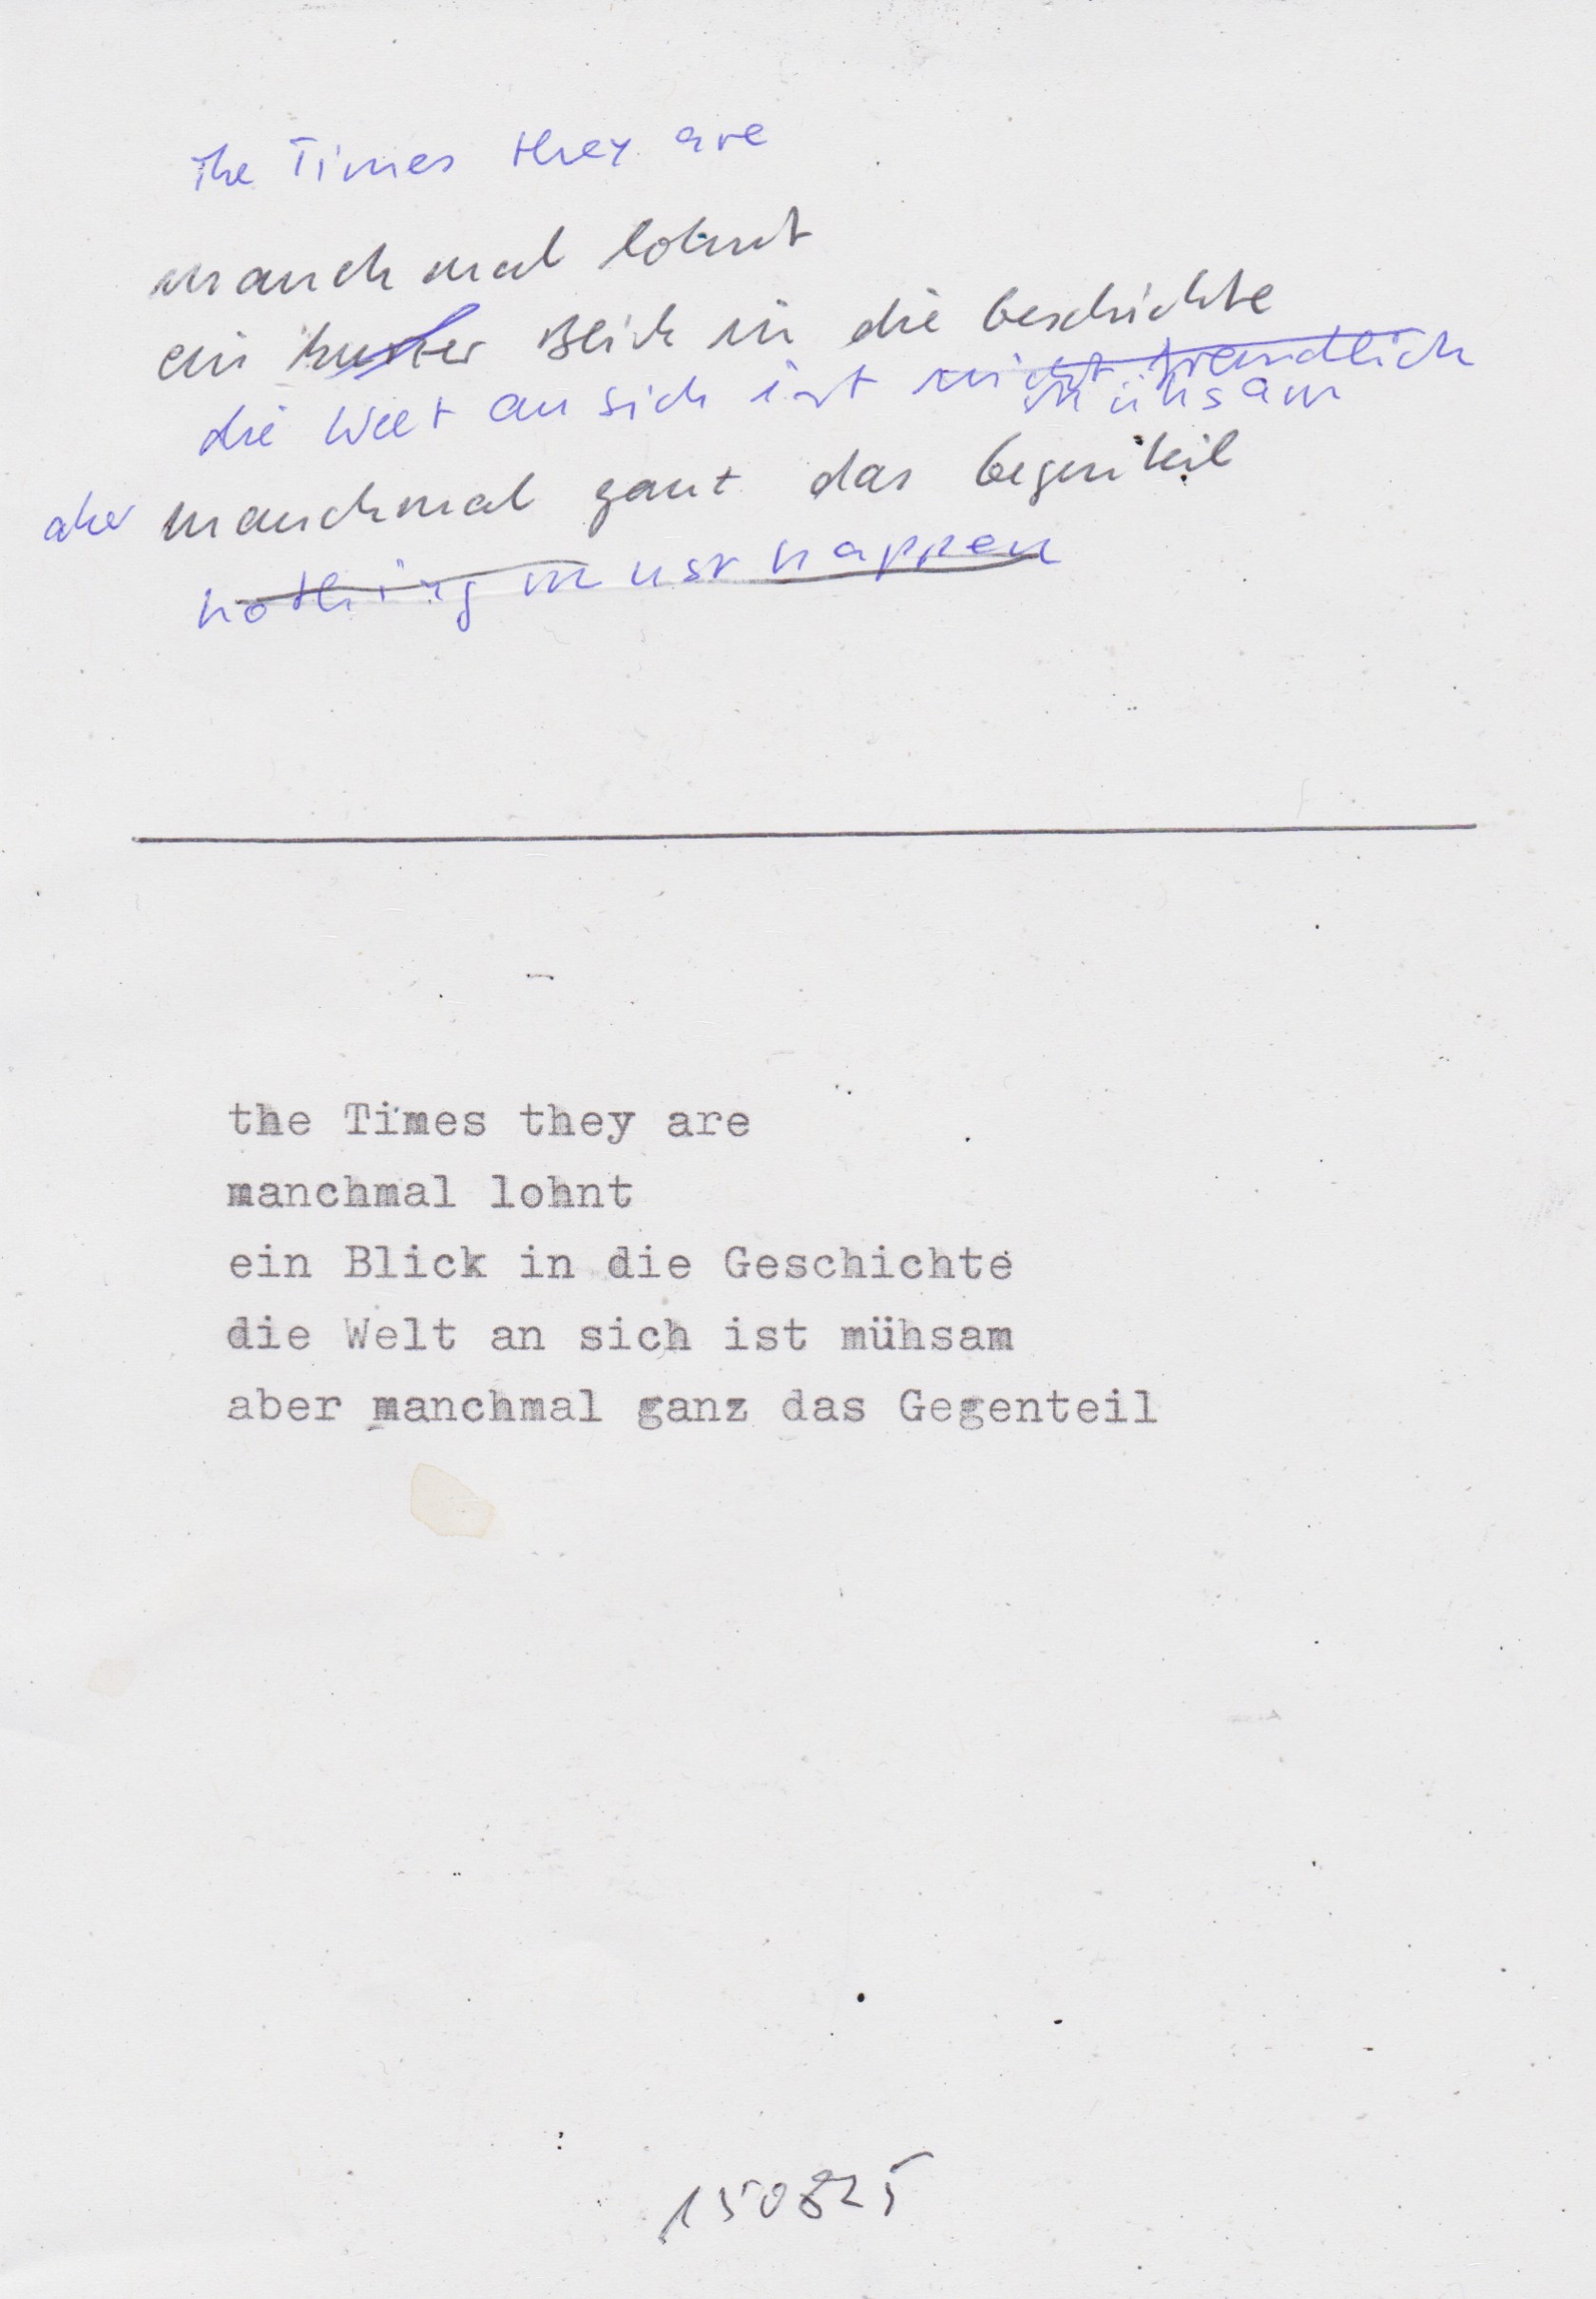 The Times they are
manchmal lohnt
ein kurzer Blick in die Geschichte
die Welt an sich ist nicht freundlich
mühsam
aber manchmal ganz das Gegenteil
nothing must happen
the Times they are
manchmal lohnt
ein Blick in die Geschichte
die Welt an sich ist mühsam
aber manchmal ganz das Gegenteil
150825